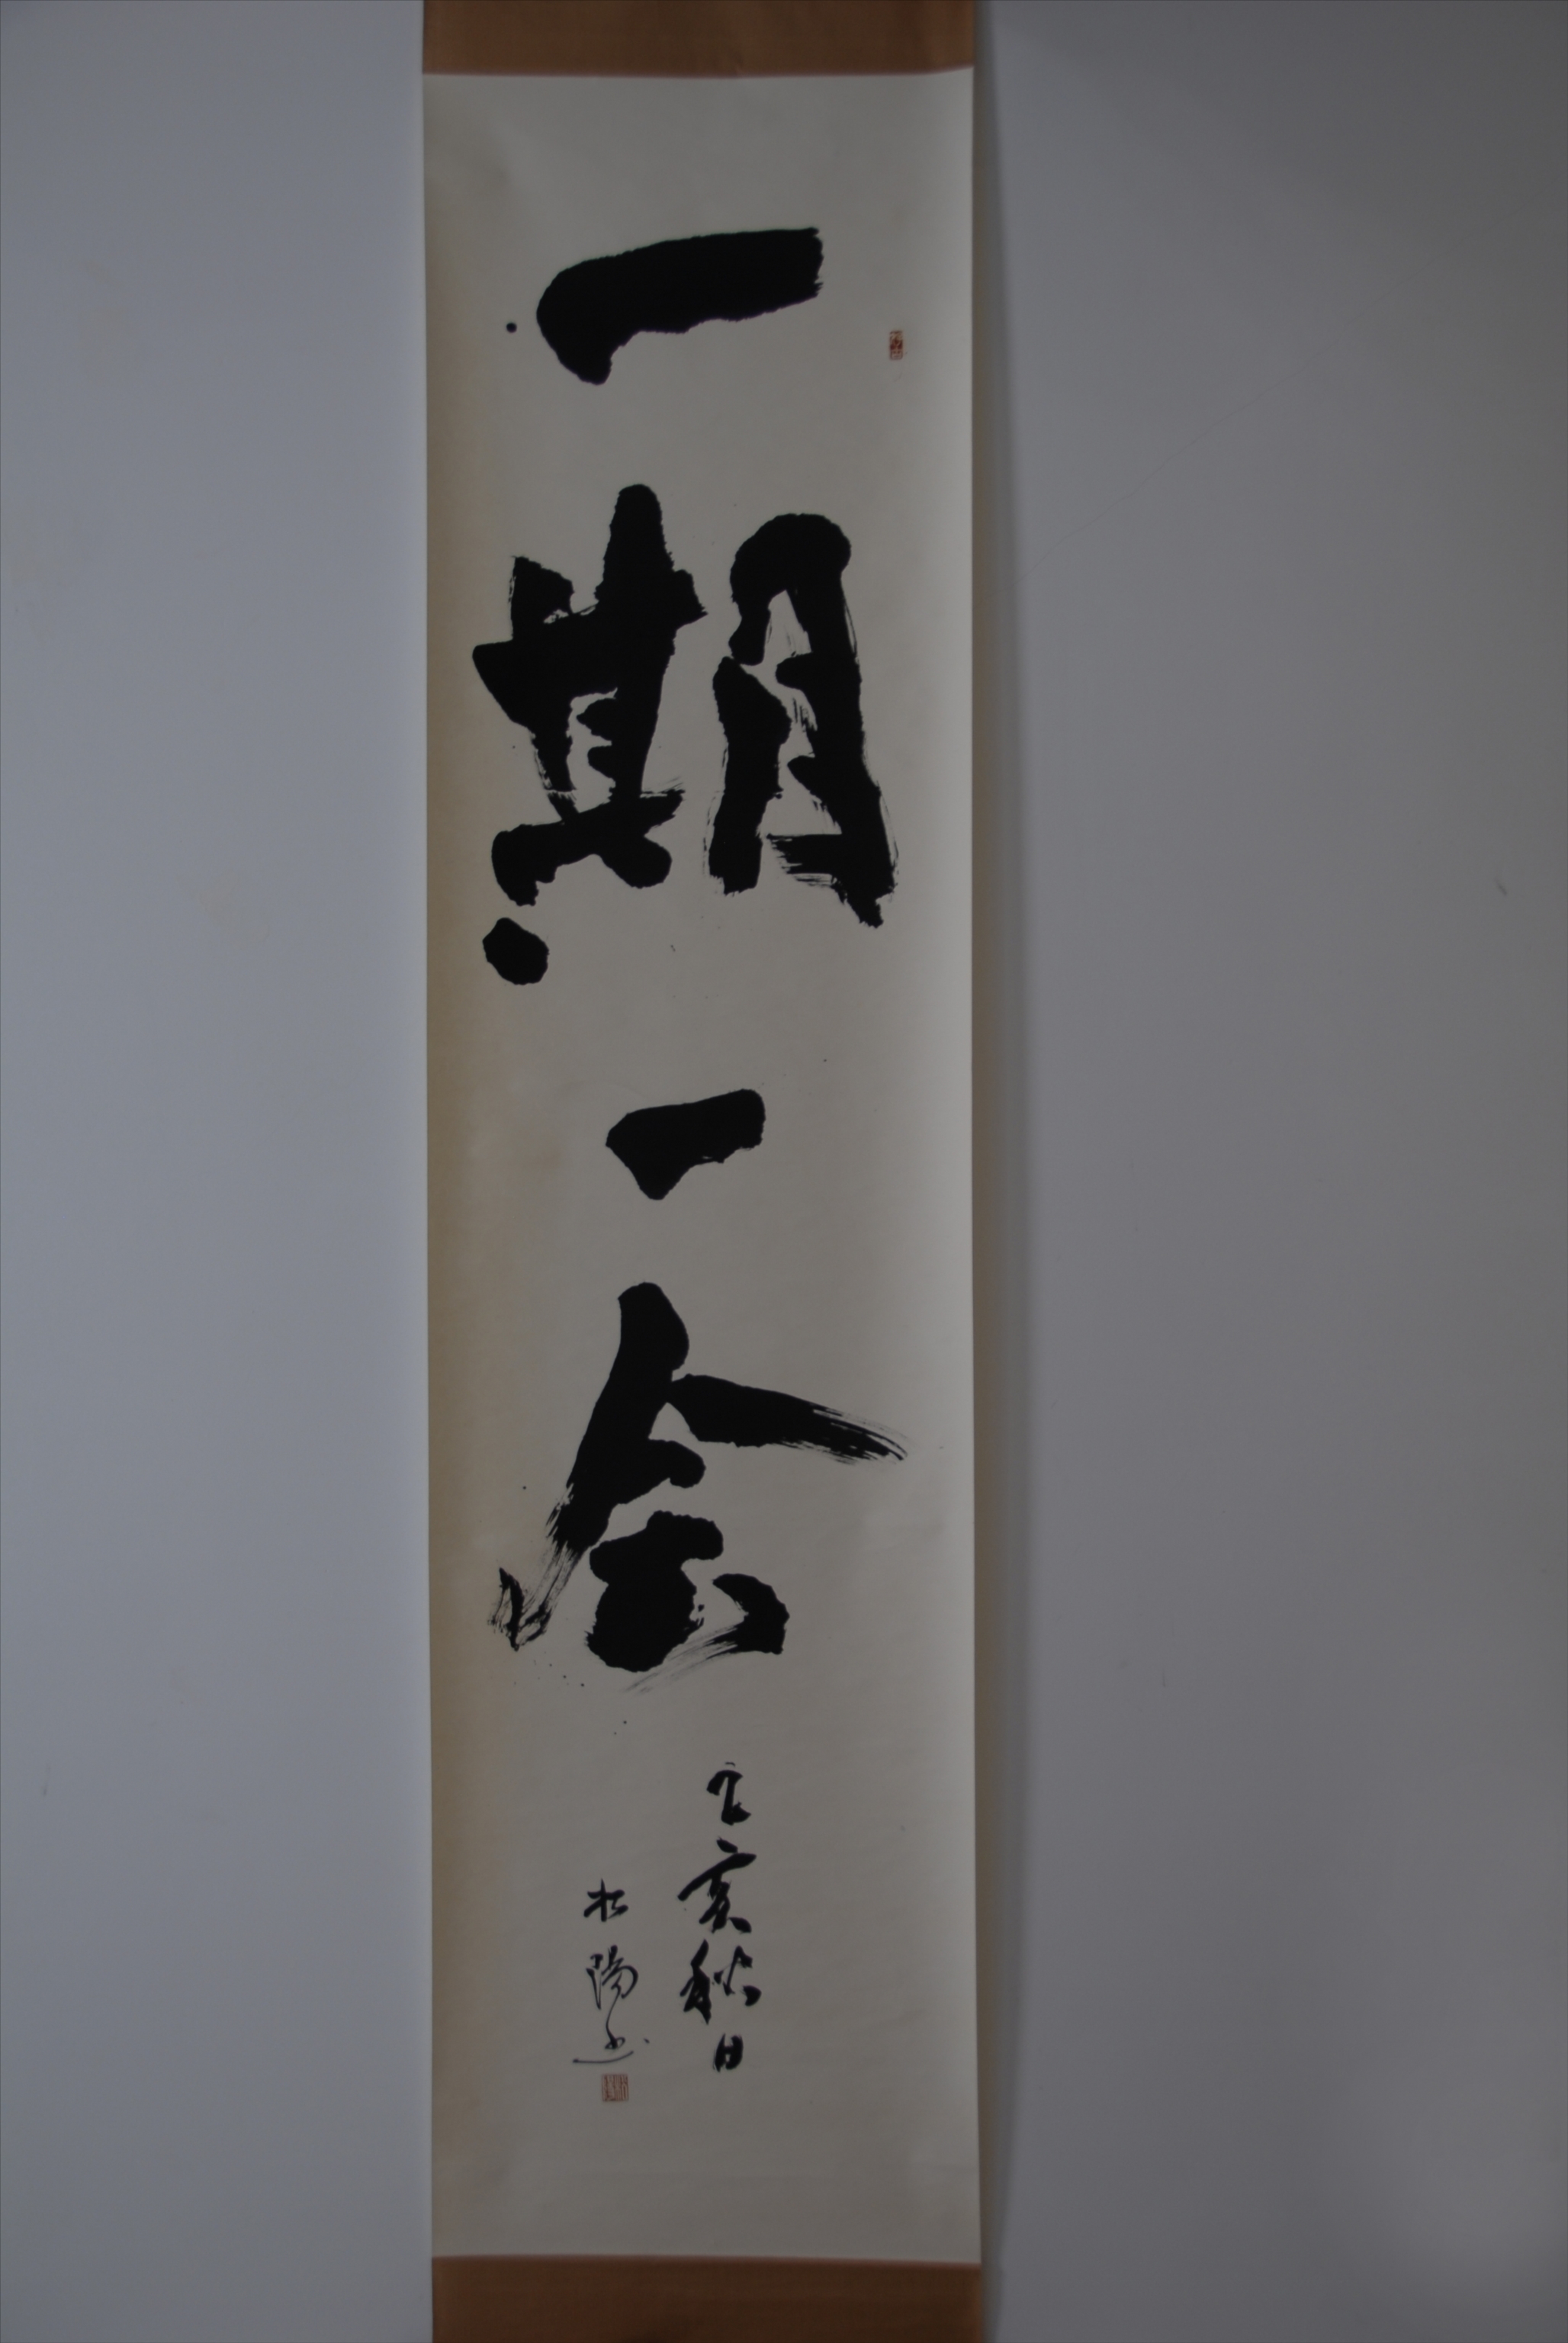 一期一会
亥秋日
松陽書